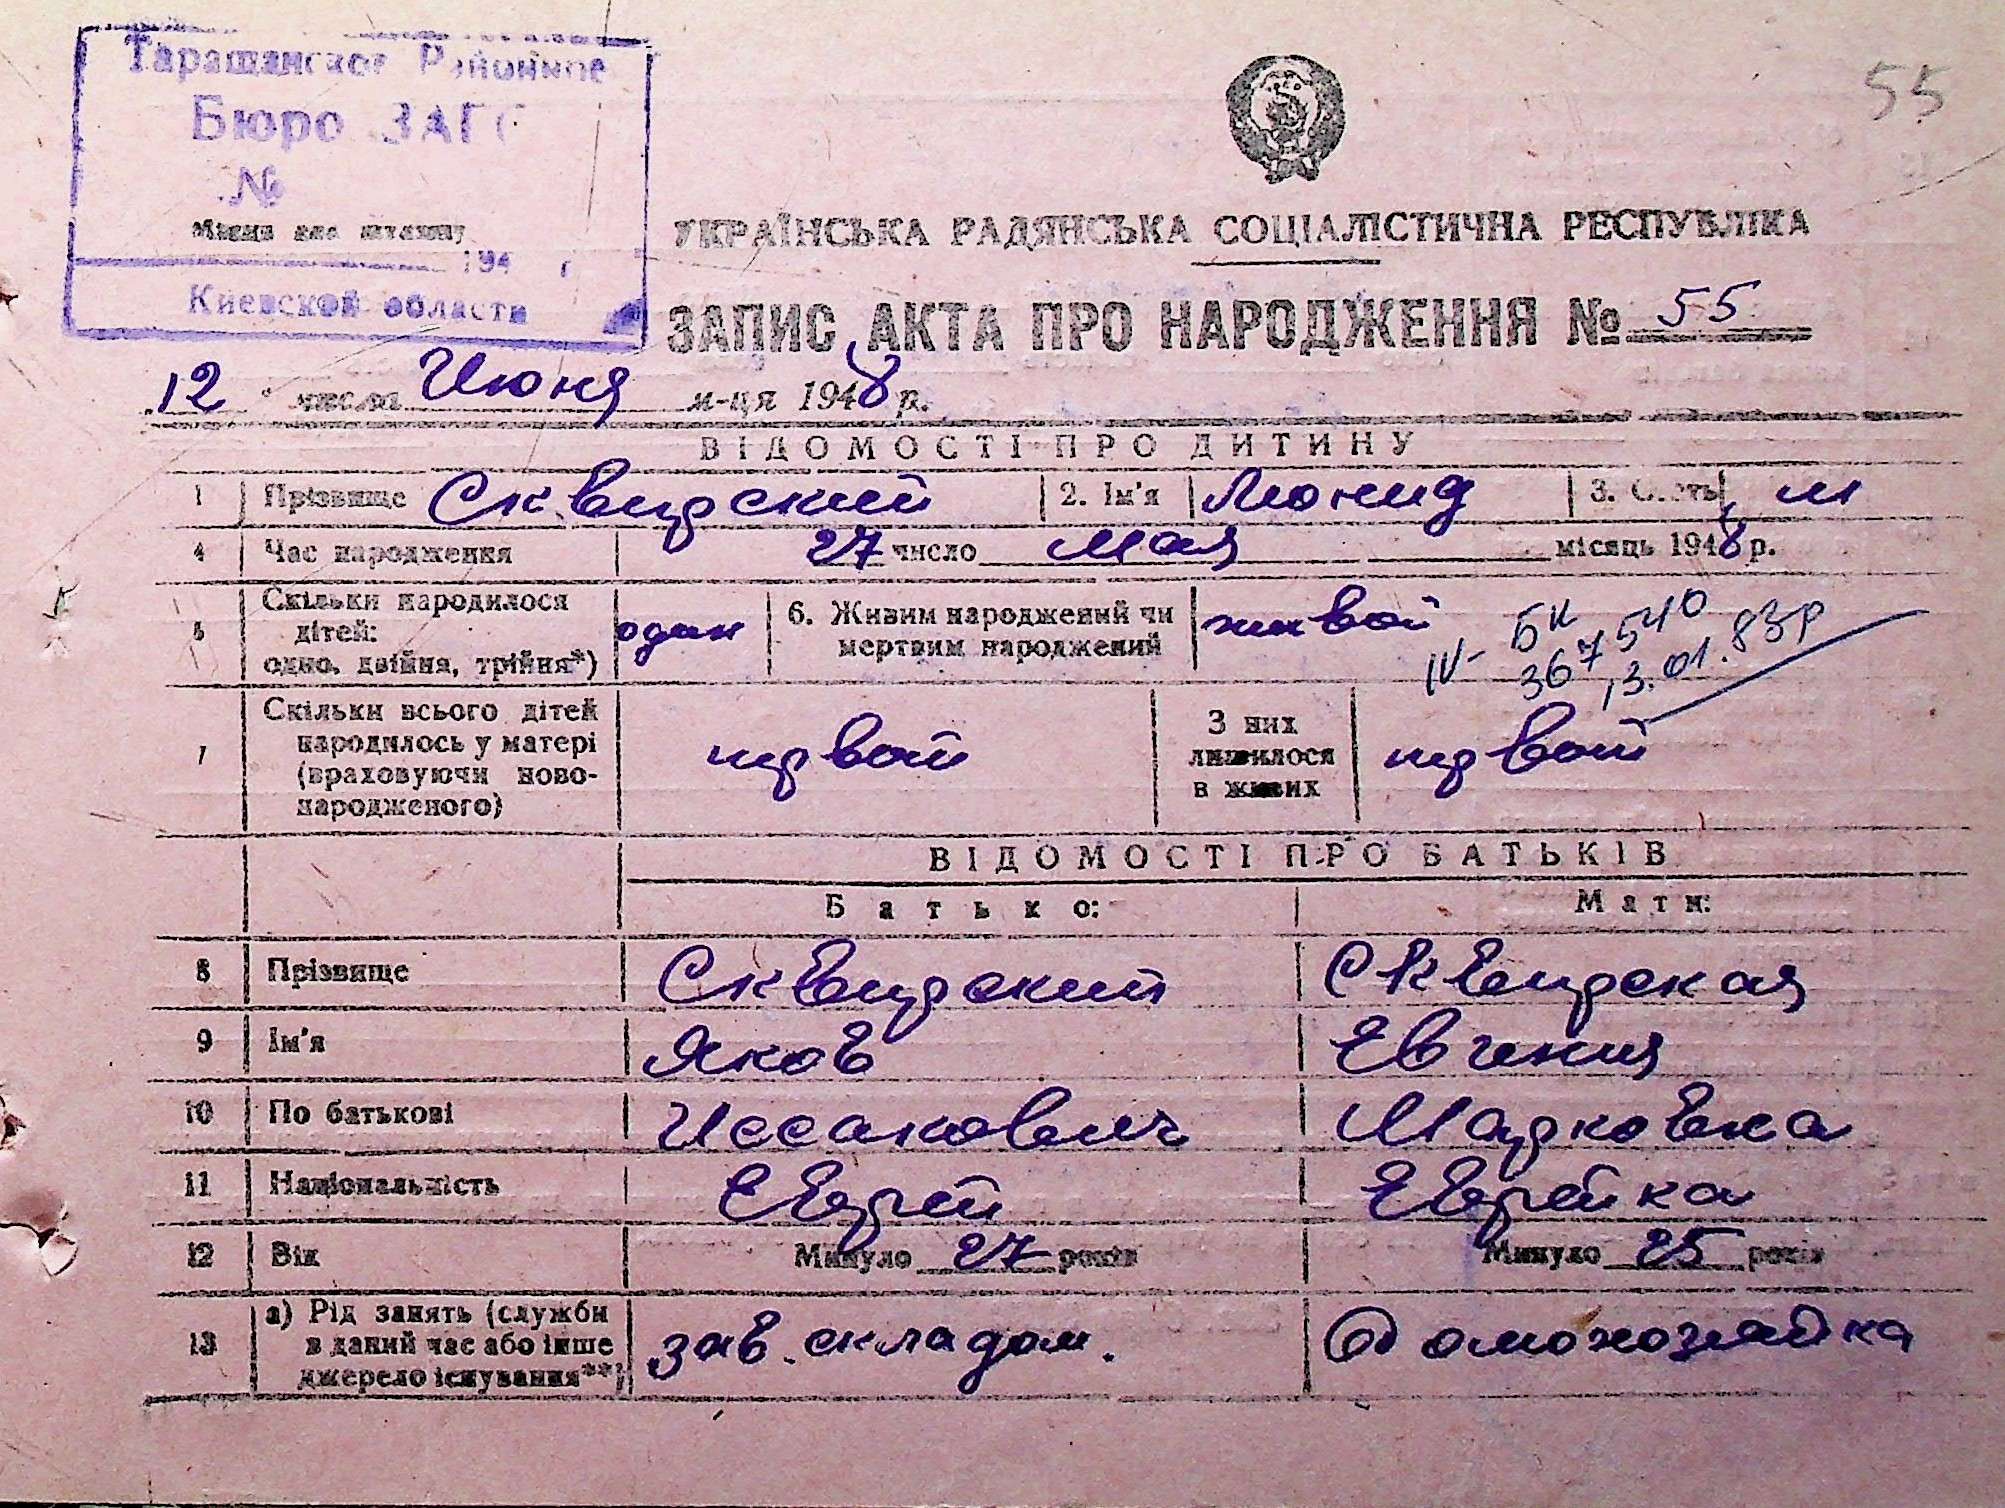 Таращанское Районное
Бюро ЗАГС
№
194 г
Киевской области
55
УКРАЇНСЬКА РАДЯНСЬКА СОЦІАЛІСТИЧНА РЕСПУБЛІКА
ЗАПИС АКТА ПРО НАРОДЖЕННЯ № 55
12 числа Июня м-ця 1948 р.
ВІДОМОСТІ ПРО ДИТИНУ
1 Прізвище Сквирский 2. Ім'я Леонид 3. Стать м
4 Час народження 27 число Мая місяць 1948 р.
5 Скільки народилося дітей: одно, двійня, трійня*) один 6. Живим народжений чи мертвим народжений живой
IV-БК 367540
13.01.83р
7 Скільки всього дітей народилось у матері (враховуючи ново-народженого) первой З них лишилося в живих первой
ВІДОМОСТІ ПРО БАТЬКІВ
Батько: Мати:
8 Прізвище Сквирский Сквирская
9 Ім'я Яков Евгения
10 По батькові Иссакович Марковна
11 Національність Еврей Еврейка
12 Вік Минуло 27 років Минуло 25 років
13 а) Рід занять (служби в даний час або інше джерело існування**) зав. складом. Домохозяйка